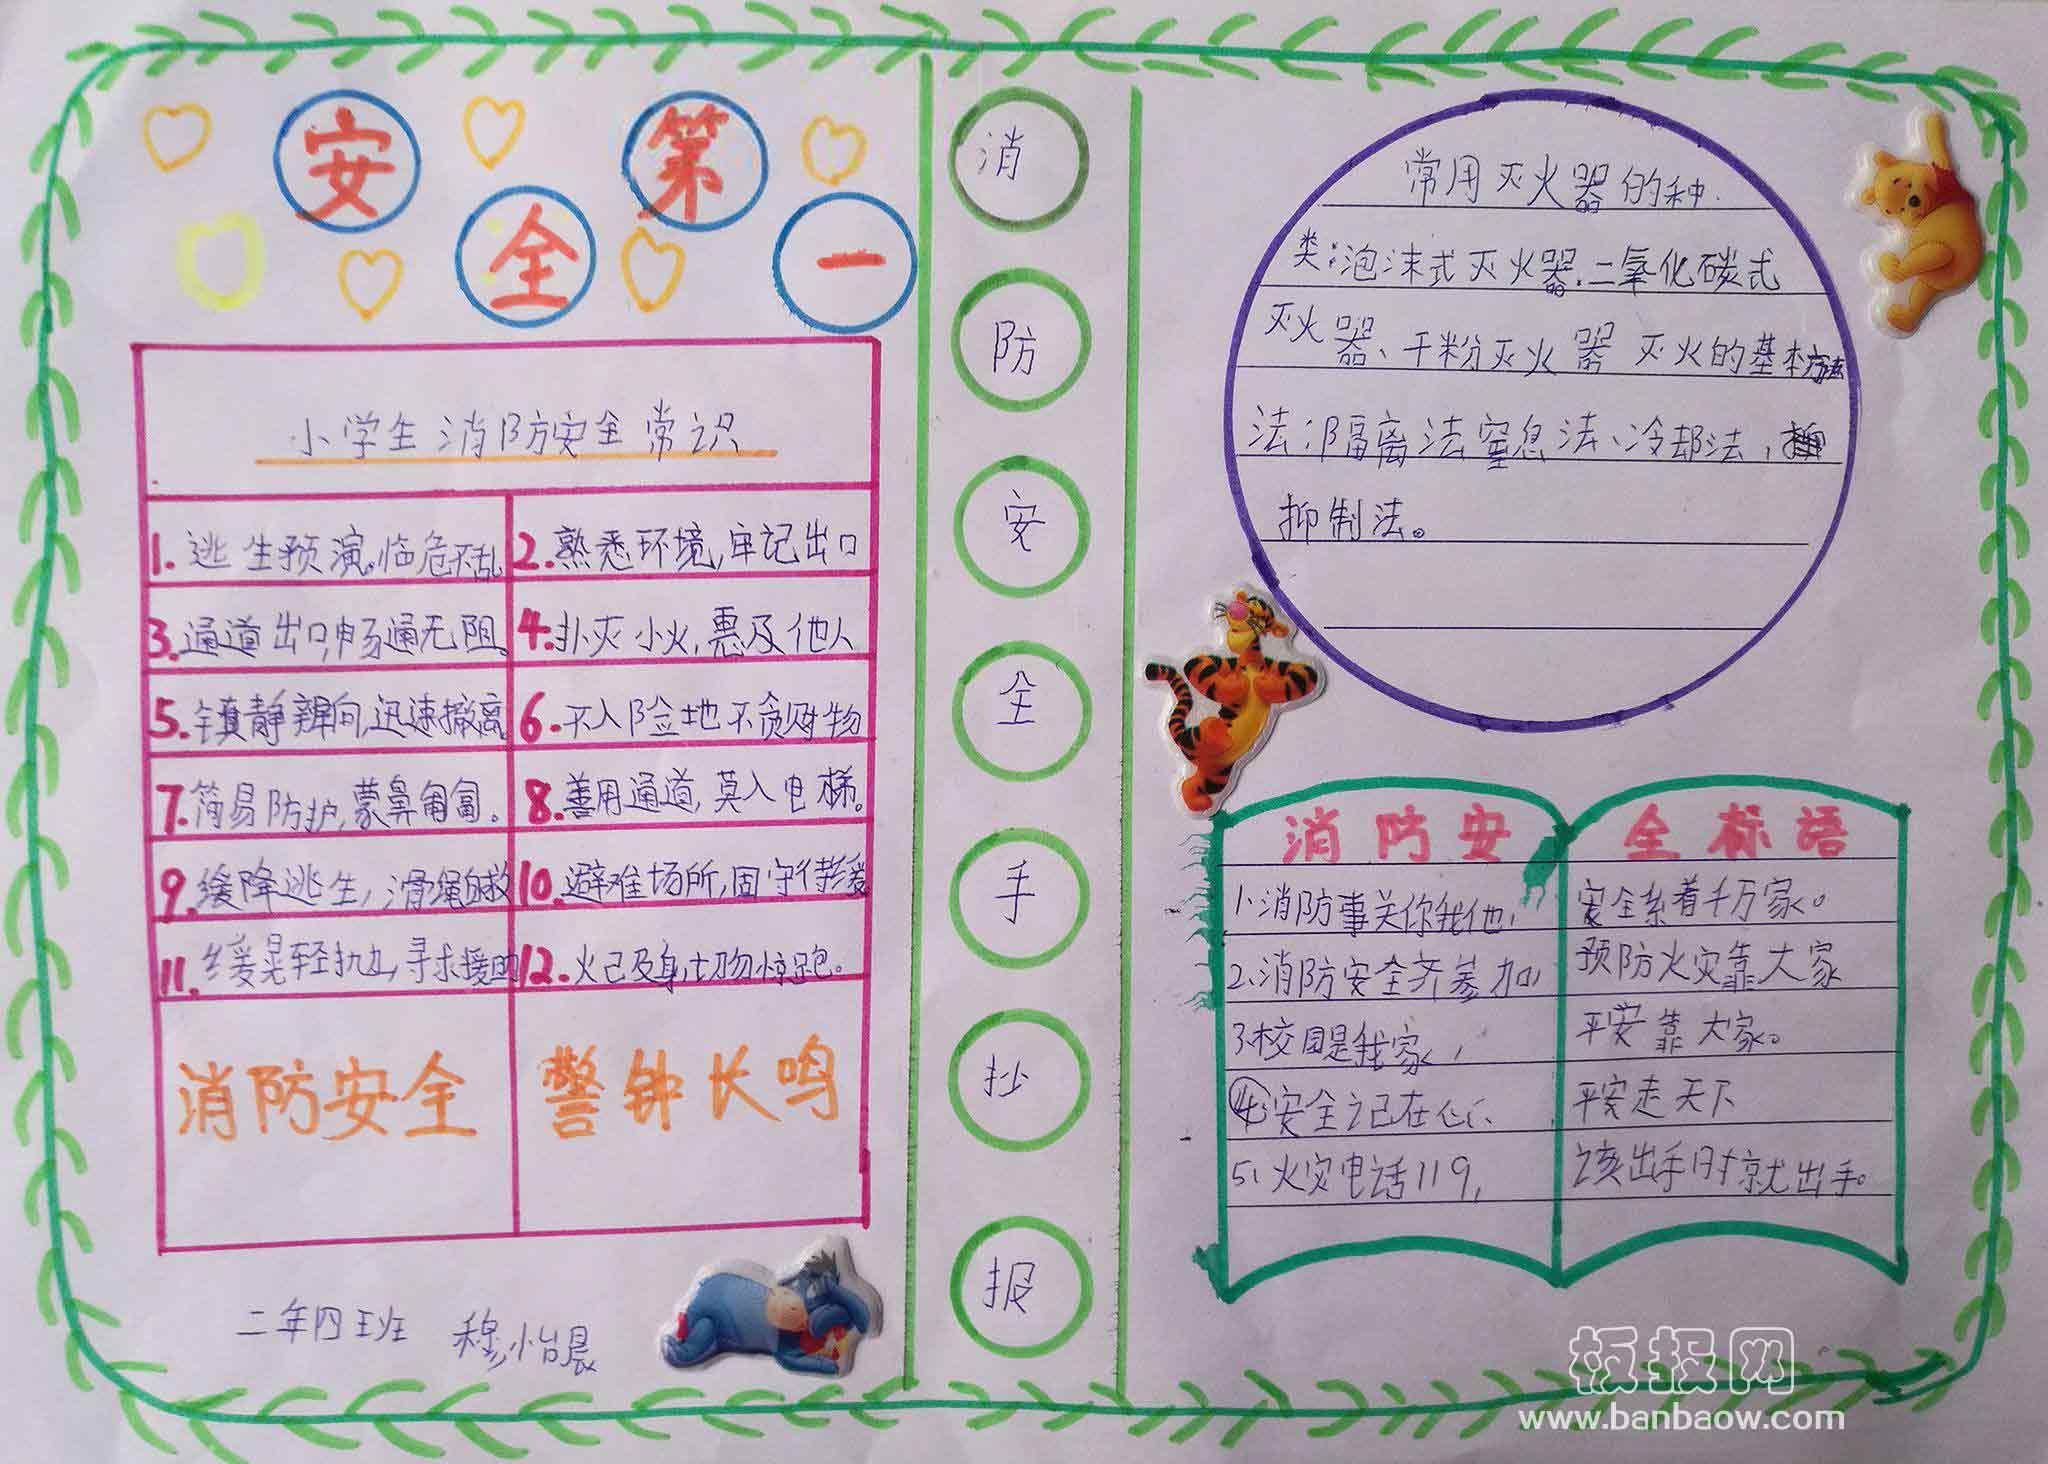 安全第一
小学生消防安全常识
1.逃生预演,临危不乱
2.熟悉环境,牢记出口
3.通道出口,畅通无阻。
4.扑灭小火,惠及他人
5.镇静辨向,迅速撤离。
6.不入险地不贪财物
7.简易防护,蒙鼻匍匐。
8.善用通道,莫入电梯。
9.缓降逃生,滑绳自救
10.避难场所,固守待援
11.缓晃轻抛,寻求援助
12.火已及身,切勿惊跑。
消防安全 警钟长鸣
二年四班 穆怡晨
消
防
安
全
手
抄
报
常用灭火器的种
类:泡沫式灭火器、二氧化碳式
灭火器、干粉灭火器 灭火的基本方法
法:隔离法窒息法、冷却法,
抑制法。
消防安全标语
1、消防事关你我他, 安全系着千万家。
2、消防安全齐参加, 预防火灾靠大家
3、校园是我家, 平安靠大家。
4、安全记在心、 平安走天下
5、火灾电话119, 该出手时就出手。
板报网
www.banbaow.com